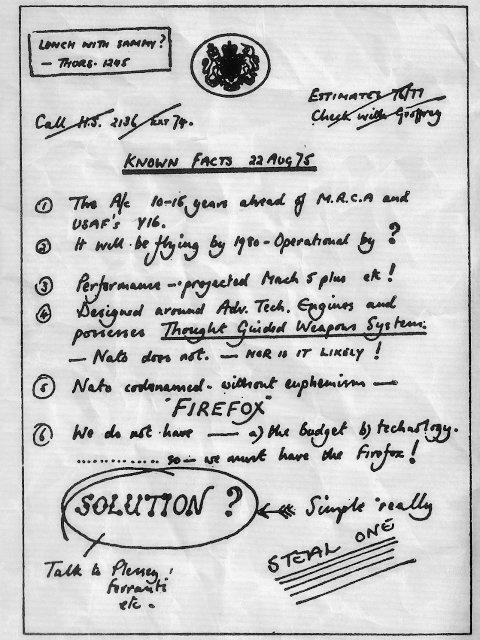 LUNCH WITH SAMMY?
— THURS. 1245
ESTIMATES 76/77
Check with Godfrey
Call H.S. 2136 EXT 78.
KNOWN FACTS 22 AUG 75
① The A/c 10-15 years ahead of M.R.C.A and
USAF's Y16.
② It will be flying by 1980 - Operational by ?
③ Performance - projected Mach 5 plus etc !
④ Designed around Adv. Tech. Engines and
possesses Thought Guided Weapons System.
— Nato does not. — NOR IS IT LIKELY !
⑤ Nato codenamed - without euphemism —
"FIREFOX"
⑥ We do not have — a) the budget b) technology.
.............. so — we must have the Firefox !
SOLUTION ?
Simple really
STEAL ONE
Talk to Plessey,
Ferranti
etc.